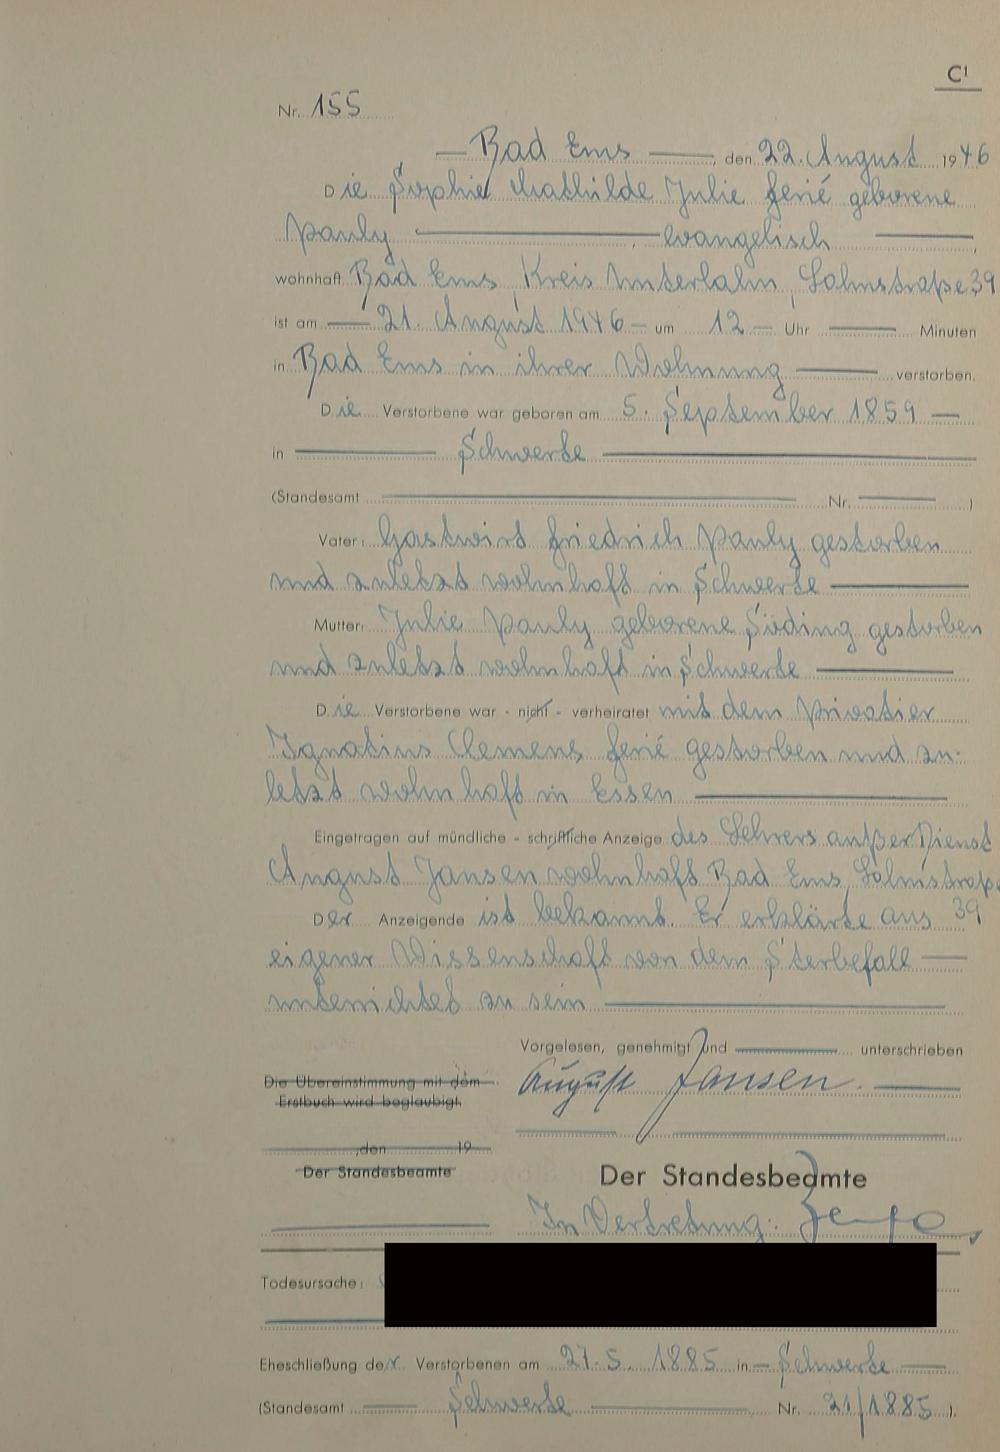 C1
Nr. 155
Bad Ems, den 22. August 1946
Die Sophie Mathilde Julie Ferié geborene
Pauly, evangelisch,
wohnhaft Bad Ems Kreis Unterlahn, Lahnstraße 39
ist am 21. August 1946 um 12 Uhr Minuten
in Bad Ems in ihrer Wohnung verstorben.
Die Verstorbene war geboren am 5. September 1859
in Schwerte
(Standesamt Nr. )
Vater: Gastwirt Friedrich Pauly gestorben
und zuletzt wohnhaft in Schwerte
Mutter: Julie Pauly geborene Süding gestorben
und zuletzt wohnhaft in Schwerte
Die Verstorbene war - nicht - verheiratet mit dem Privatier
Ignatius Clemens Ferié gestorben und zu-
letzt wohnhaft in Essen
Eingetragen auf mündliche - schriftliche Anzeige des Lehrers außer Dienst
August Jansen wohnhaft Bad Ems, Lahnstraße
39
Der Anzeigende ist bekannt. Er erklärte aus
eigener Wissenschaft von dem Sterbefall
unterrichtet zu sein
Vorgelesen, genehmigt und unterschrieben
August Jansen.
Die Übereinstimmung mit dem
Erstbuch wird beglaubigt
, den 19
Der Standesbeamte
Der Standesbeamte
In Vertretung:
Todesursache:
Eheschließung der Verstorbenen am 27.5.1885 in Schwerte
(Standesamt Schwerte Nr. 21/1885).